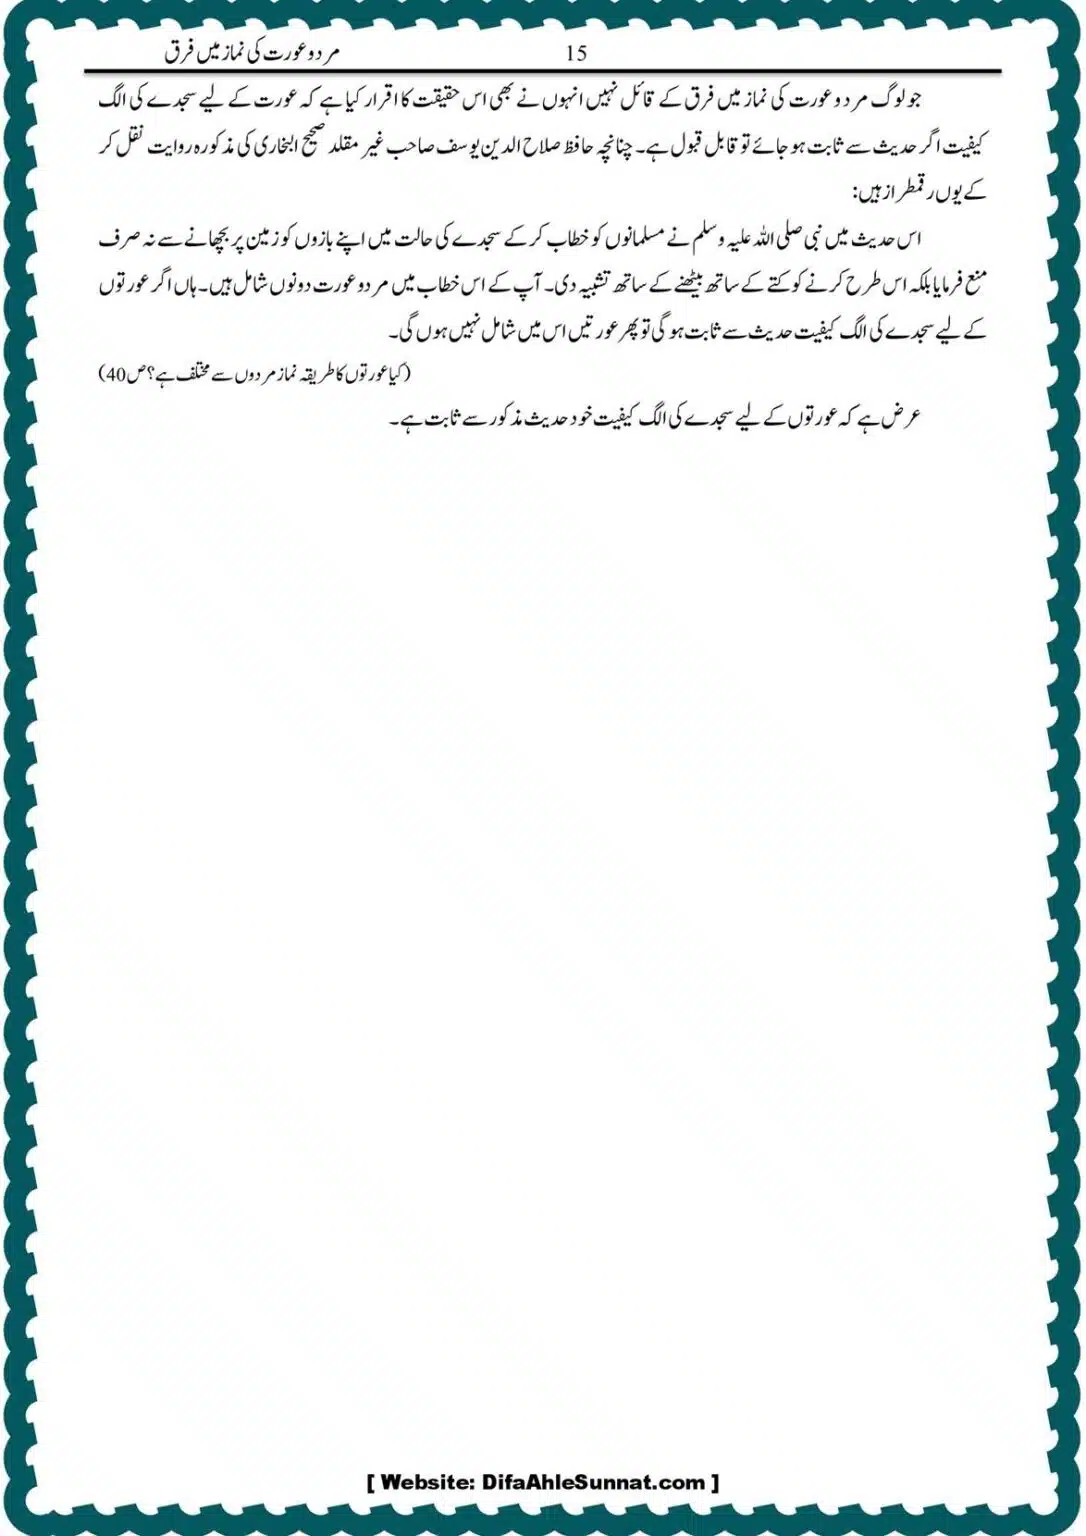 مرد و عورت کی نماز میں فرق 15
جو لوگ مرد و عورت کی نماز میں فرق کے قائل نہیں انہوں نے بھی اس حقیقت کا اقرار کیا ہے کہ عورت کے لیے سجدے کی الگ
کیفیت اگر حدیث سے ثابت ہو جائے تو قابل قبول ہے۔ چنانچہ حافظ صلاح الدین یوسف صاحب غیر مقلد صحیح البخاری کی مذکورہ روایت نقل کر
کے یوں رقمطراز ہیں:
اس حدیث میں نبی صلی اللہ علیہ وسلم نے مسلمانوں کو خطاب کر کے سجدے کی حالت میں اپنے بازوں کو زمین پر بچھانے سے نہ صرف
منع فرمایا بلکہ اس طرح کرنے کو کتے کے ساتھ بیٹھنے کے ساتھ تشبیہ دی۔ آپ کے اس خطاب میں مرد و عورت دونوں شامل ہیں۔ ہاں اگر عورتوں
کے لیے سجدے کی الگ کیفیت حدیث سے ثابت ہو گی تو پھر عورتیں اس میں شامل نہیں ہوں گی۔
(کیا عورتوں کا طریقہ نماز مردوں سے مختلف ہے؟ ص40)
عرض ہے کہ عورتوں کے لیے سجدے کی الگ کیفیت خود حدیث مذکور سے ثابت ہے۔
[ Website: DifaAhleSunnat.com ]